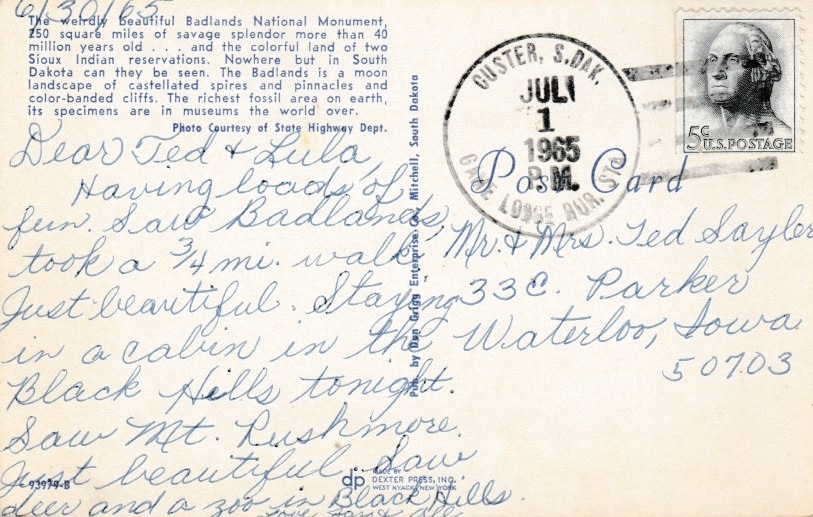 6/30/65
The weirdly beautiful Badlands National Monument,
250 square miles of savage splendor more than 40
million years old . . . and the colorful land of two
Sioux Indian reservations. Nowhere but in South
Dakota can they be seen. The Badlands is a moon
landscape of castellated spires and pinnacles and
color-banded cliffs. The richest fossil area on earth,
its specimens are in museums the world over.
Photo Courtesy of State Highway Dept.
Dear Ted & Lula,
Having loads of
fun. Saw Badlands,
took a 3/4 mi. walk,
Just beautiful. Staying
in a cabin in the
Black Hills tonight.
Saw Mt. Rushmore.
Just beautiful. Saw
deer and a zoo in Black Hills.
Love
93979-B
Pub. by Don Grigg Enterprise Co., Mitchell, South Dakota
dp MADE BY
DEXTER PRESS, INC.
WEST NYACK, NEW YORK
CUSTER, S.DAK.
JUL
1
1965
P.M.
GAME LODGE RUR. STA.
Post Card
5c
U.S. POSTAGE
Mr. & Mrs. Ted Sayler
33 C. Parker
Waterloo, Iowa
50703